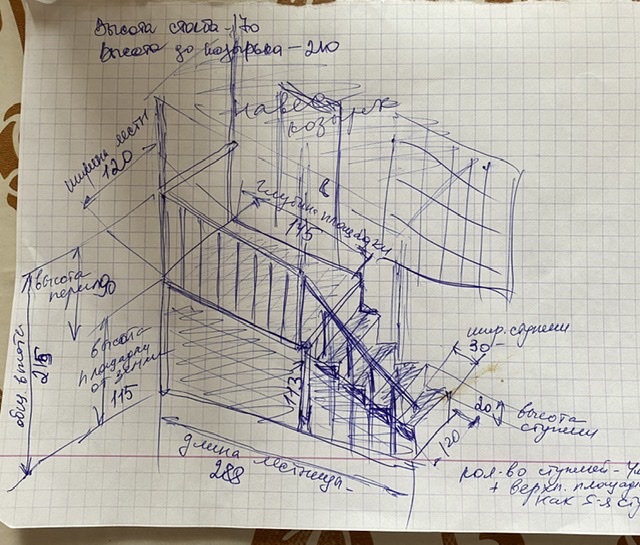 Высота снизу - 70
Высота до козырька - 210
навес
козырек
ширина лестн
120
глубина площадки
145
высота
перил
90
высота
площадки
от земли
115
общ высота
215
113
шир. ступени
30
20
высота
ступени
120
длина лестницы
288
кол-во ступеней - 4
+ верхн. площадка
как 5-я сту